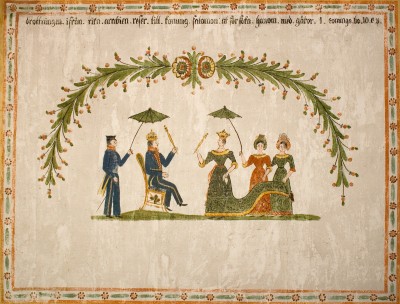 drottningen. ifrån. rika. arabien. reser. till. konung. salomon. at försöka. honom. med. gåtor. 1. konungs. bo. 10. c. v.